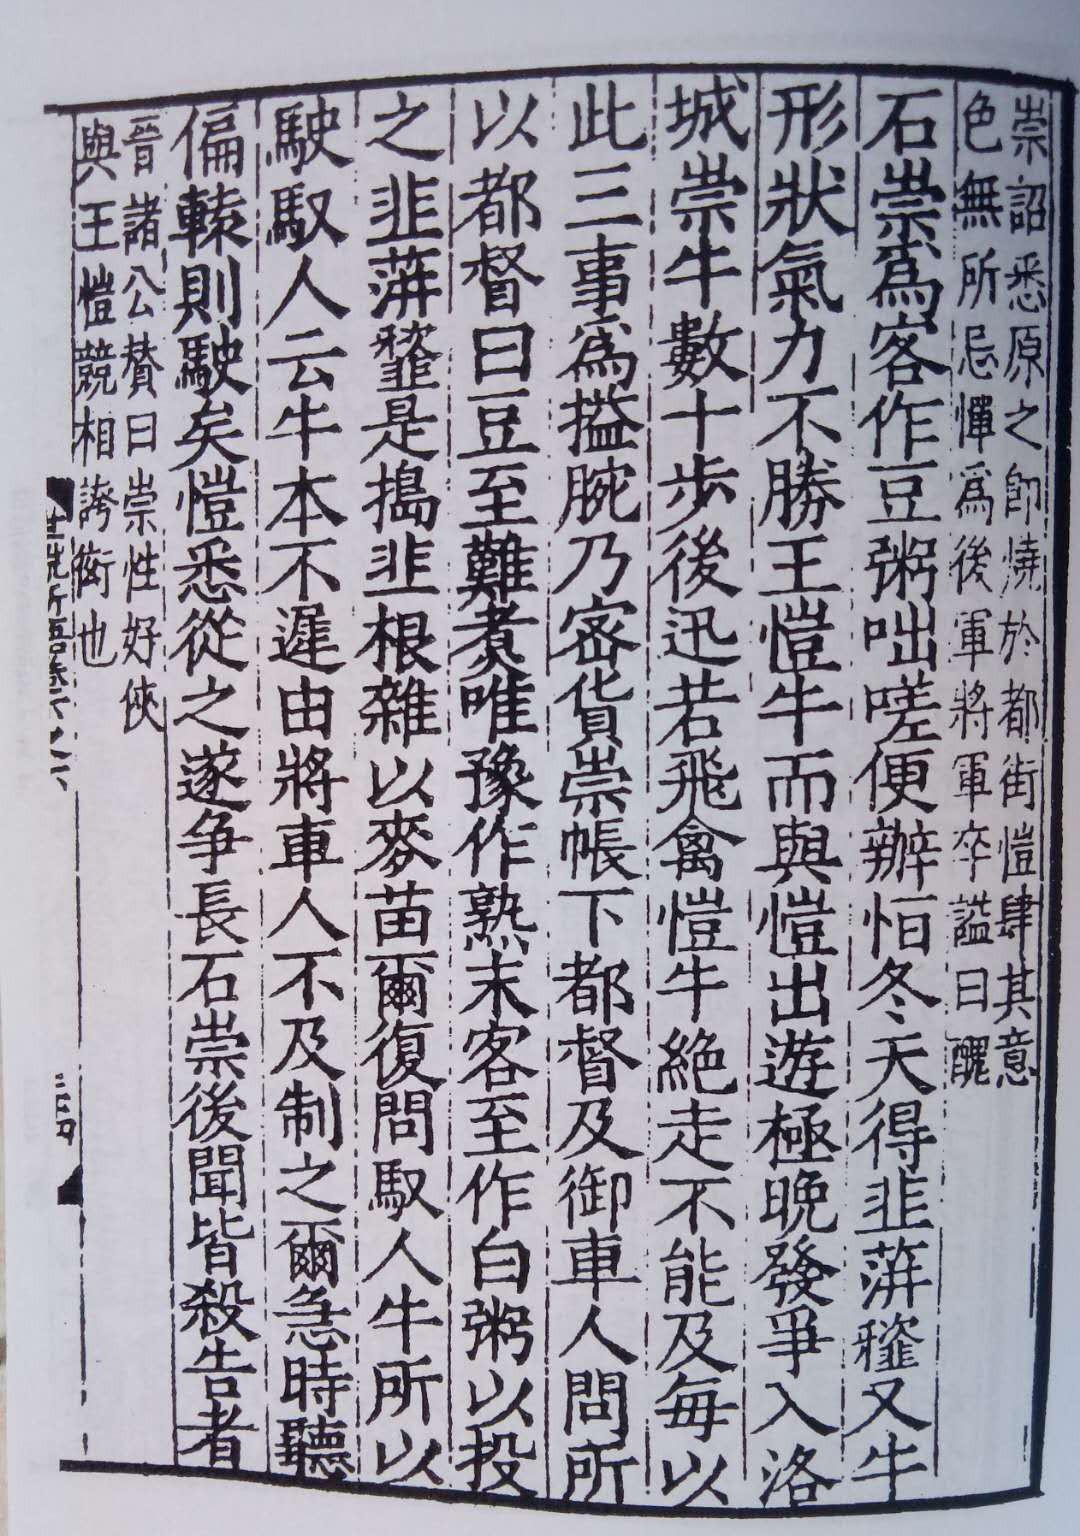 崇詔悉原之即燒於都街愷肆其意
色無所忌憚爲後軍將軍卒謚曰醜
石崇爲客作豆粥咄嗟便辦恒冬天得韭蓱虀又牛
形狀氣力不勝王愷牛而與愷出遊極晚發爭入洛
城崇牛數十步後迅若飛禽愷牛絶走不能及每以
此三事爲搤腕乃密貨崇帳下都督及御車人問所
以都督曰豆至難煑唯豫作熟末客至作白粥以投
之韭蓱虀是搗韭根雜以麥苗爾復問馭人牛所以
駛馭人云牛本不遲由將車人不及制之爾急時聽
偏轅則駛矣愷悉從之遂爭長石崇後聞皆殺告者
晉諸公贊曰崇性好俠
與王愷競相誇衒也
二十四